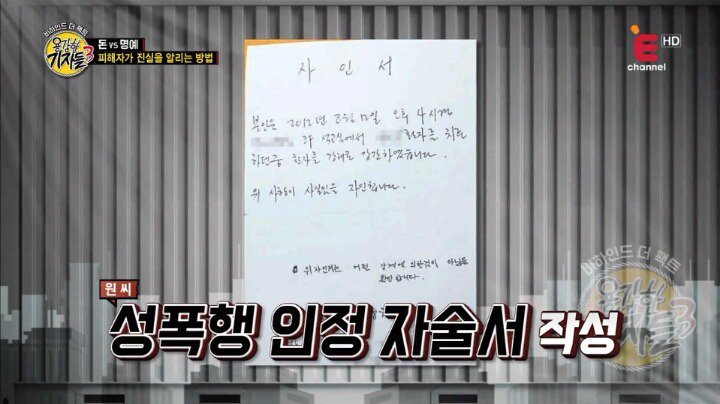 비하인드 더 팩트
용감한 기자들 3
돈 vs 명예
피해자가 진실을 알리는 방법
E HD
channel
자 인 서
본인은 2012년 2월 12일 오후 4시경
과 석고실에서 환자를 치료
하던중 환자를 강제로 강간하였읍니다.
위 사항이 사실임을 자인합니다.
위 자인서는 어떤 강제에 의한것이 아님을
확인합니다.
비하인드 더 팩트
용감한 기자들 3
원 씨
성폭행 인정 자술서 작성